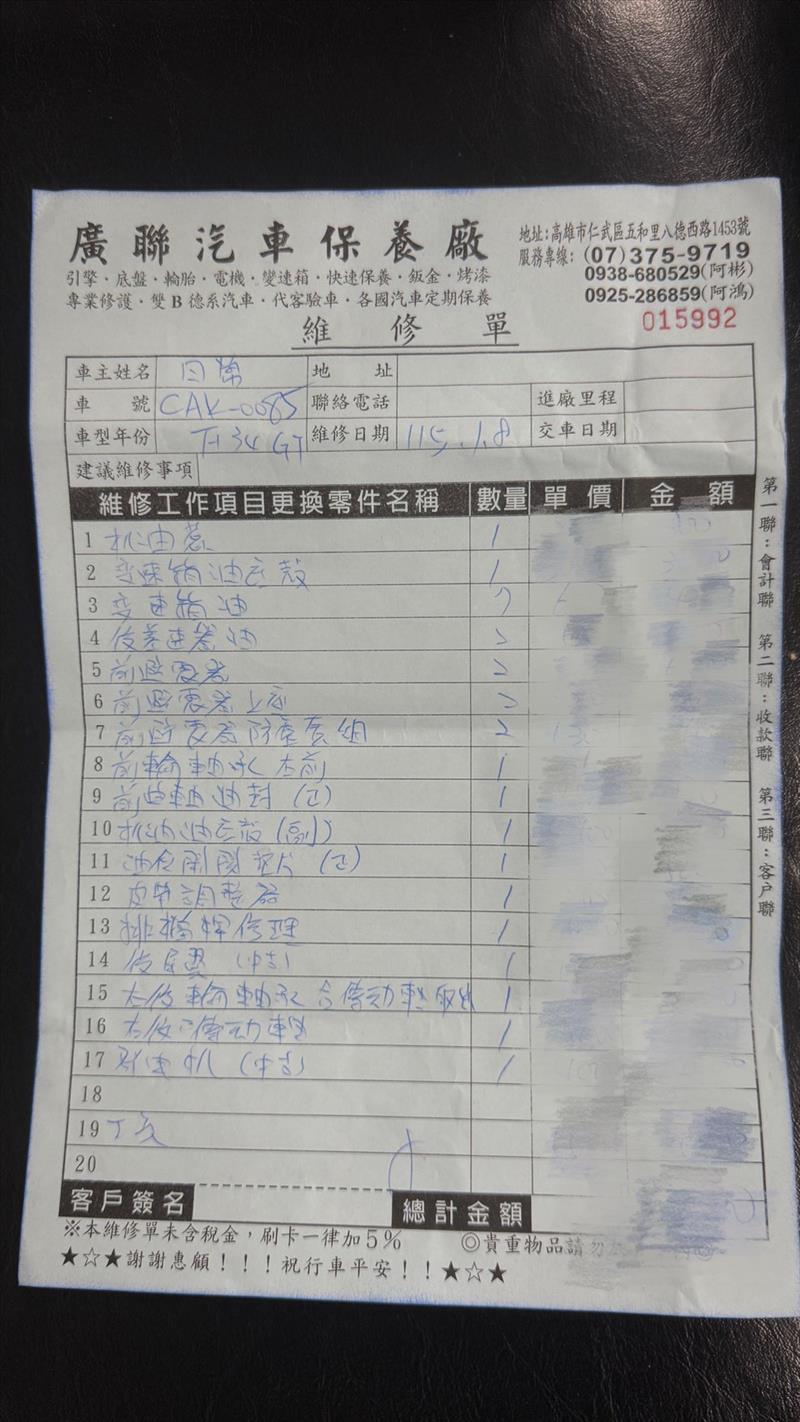 廣聯汽車保養廠
引擎·底盤·輪胎·電機·變速箱·快速保養·鈑金·烤漆
專業修護·雙B德系汽車·代客驗車·各國汽車定期保養
地址:高雄市仁武區五和里八德西路1453號
服務專線:(07)375-9719
0938-680529(阿彬)
0925-286859(阿鴻)
維修單
015992
車主姓名 地址
車號 CAK-0085 聯絡電話 進廠里程
車型年份 F34 GT 維修日期 115.1.8 交車日期
建議維修事項
維修工作項目更換零件名稱 數量 單價 金額
1 机油蕊 1
2 变速箱油底殼 1
3 变速箱油 7
4 後差速器油 2
5 前避震器 2
6 前避震器上座 2
7 前避震器防塵套組 2
8 前輪軸承 右前 1
9 前曲軸油封(正) 1
10 机油油底殼(副) 1
11 油位開關墊片(正) 1
12 皮帶調整器 1
13 排檔桿修理 1
14 後尾翼(中古) 1
15 左後輪軸承 含傳動軸 1
16 左後傳動軸 1
17 (中古) 1
18
19 工資
20
客戶簽名 總計金額
※本維修單未含稅金,刷卡一律加5% ◎貴重物品請勿
★☆★謝謝惠顧!!!祝行車平安!!★☆★
第一聯:會計聯 第二聯:收款聯 第三聯:客戶聯